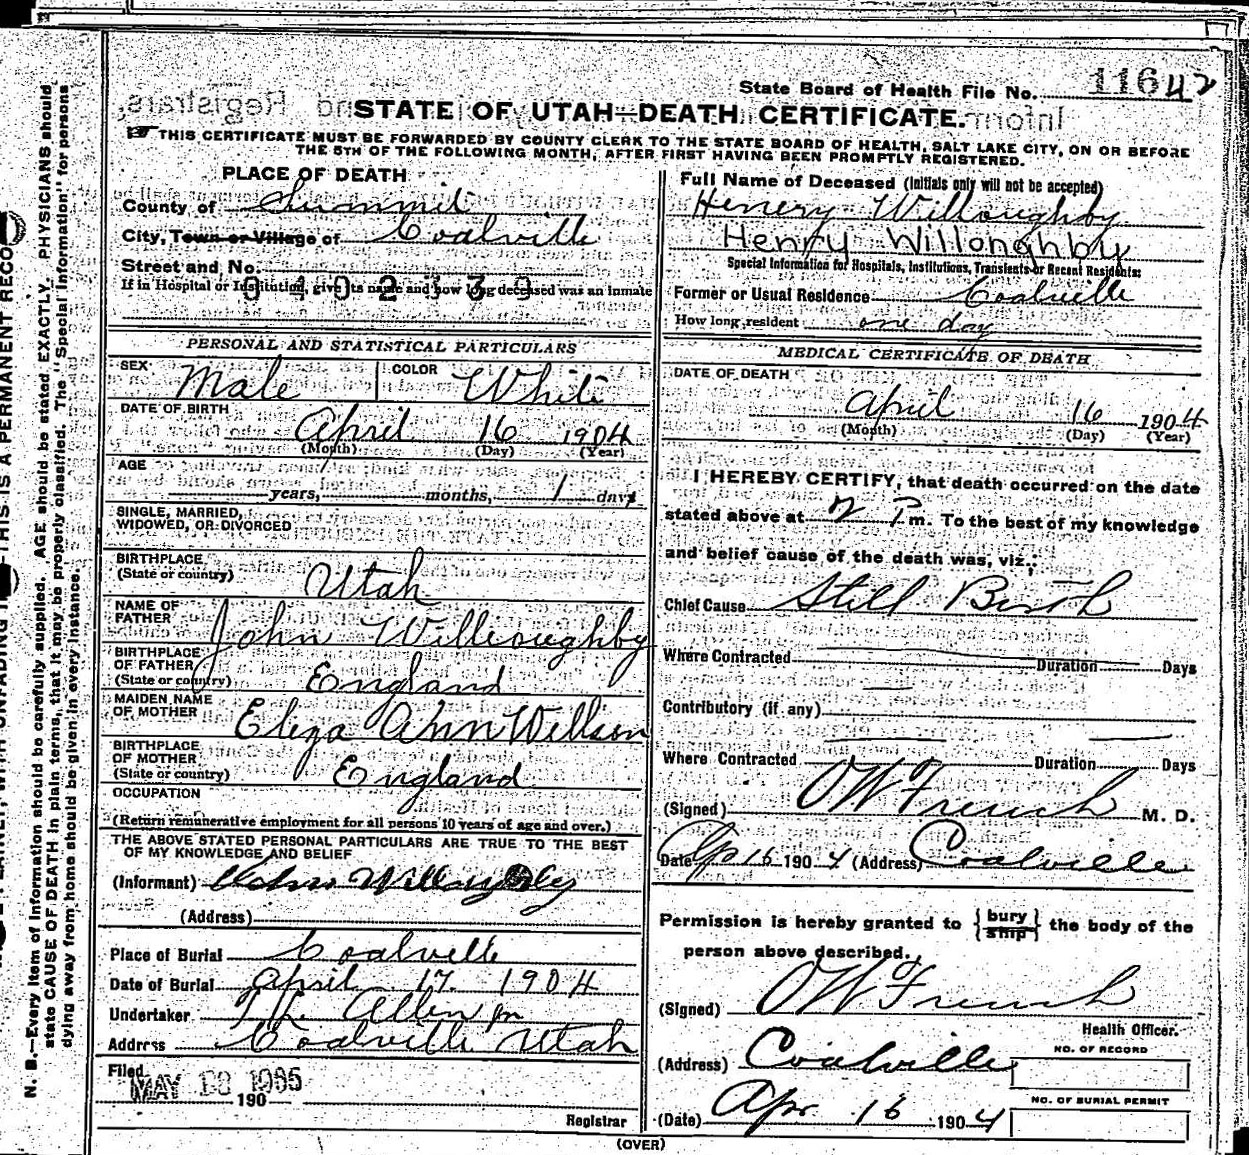 State Board of Health File No. 11642
STATE OF UTAH—DEATH CERTIFICATE.
THIS CERTIFICATE MUST BE FORWARDED BY COUNTY CLERK TO THE STATE BOARD OF HEALTH, SALT LAKE CITY, ON OR BEFORE
THE 5TH OF THE FOLLOWING MONTH, AFTER FIRST HAVING BEEN PROMPTLY REGISTERED.
PLACE OF DEATH
County of Summit
City, Town or Village of Coalville
Street and No.
If in Hospital or Institution, give its name and how long deceased was an inmate
0102339
PERSONAL AND STATISTICAL PARTICULARS
SEX Male COLOR White
DATE OF BIRTH
April 16 1904
(Month) (Day) (Year)
AGE
years, months, 1 days
SINGLE, MARRIED,
WIDOWED, OR DIVORCED
BIRTHPLACE
(State or country) Utah
NAME OF
FATHER John Willioughby
BIRTHPLACE
OF FATHER
(State or country) England
MAIDEN NAME
OF MOTHER Eliza Ann Willson
BIRTHPLACE
OF MOTHER
(State or country) England
OCCUPATION
(Return remunerative employment for all persons 10 years of age and over.)
THE ABOVE STATED PERSONAL PARTICULARS ARE TRUE TO THE BEST
OF MY KNOWLEDGE AND BELIEF
(Informant) John Willoughby
(Address)
Place of Burial Coalville
Date of Burial April 17. 1904
Undertaker Allen
Address Coalville Utah
Filed
MAY 1965
190
Registrar
Full Name of Deceased (Initials only will not be accepted)
Henery Willoughby
Henry Willonghby
Special Information for Hospitals, Institutions, Transients or Recent Residents:
Former or Usual Residence Coalville
How long resident one day
MEDICAL CERTIFICATE OF DEATH
DATE OF DEATH
April 16 1904
(Month) (Day) (Year)
I HEREBY CERTIFY, that death occurred on the date
stated above at 2 P m. To the best of my knowledge
and belief cause of the death was, viz.:
Chief Cause Still Birth
Where Contracted Duration Days
Contributory (if any)
Where Contracted Duration Days
(Signed) OW French M. D.
Date Ap 16 1904 (Address) Coalville
Permission is hereby granted to {bury ship} the body of the
person above described.
(Signed) OW French
Health Officer.
(Address) Coalville
NO. OF RECORD
(Date) Apr 16 1904
NO. OF BURIAL PERMIT
(OVER)
N. B.—Every item of information should be carefully supplied. AGE should be stated EXACTLY. PHYSICIANS should
state CAUSE OF DEATH in plain terms, that it may be properly classified. The "Special Information" for persons
dying away from home should be given in every instance.
THIS IS A PERMANENT RECO